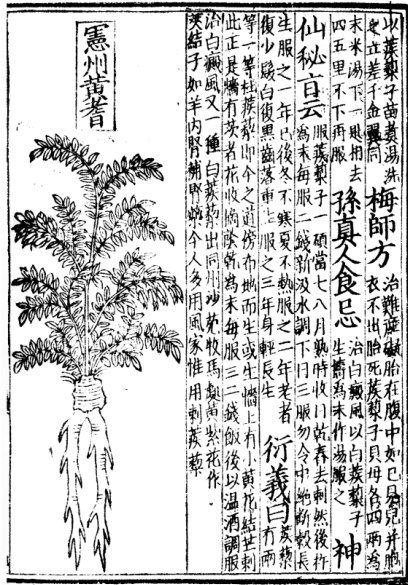 以蒺藜子苗煮湯洗
之立差千金翼同
梅師方
治難產礙胎在腹中如已見兒并胞
衣不出胎死蒺藜子貝母各四兩為
末米湯下一匙相去
四五里不下再服
孫真人食忌
治白癜風以白蒺藜子
生擣為末作湯服之
神
仙秘言云
服蒺藜子一碩當七八月熟時收日乾舂去刺然後杵
為末每服二錢新汲水調下日三服勿令中絕斷穀長
生服之一年已後冬不寒夏不熱服之二年老者
復少髮白復黑齒落重生服之三年身輕長生
衍義曰
蒺藜
有兩
等一等杜蒺藜即今之道傍布地而生或生牆上有小黃花結芒刺
此正是牆有茨者花收摘蔭乾為末每服三二錢飯後以温酒調服
治白癜風又一種白蒺藜出同州沙苑收馬紫花作
莢結子如羊内腎補腎藥今人多用風家惟用刺蒺藜
憲州黄耆